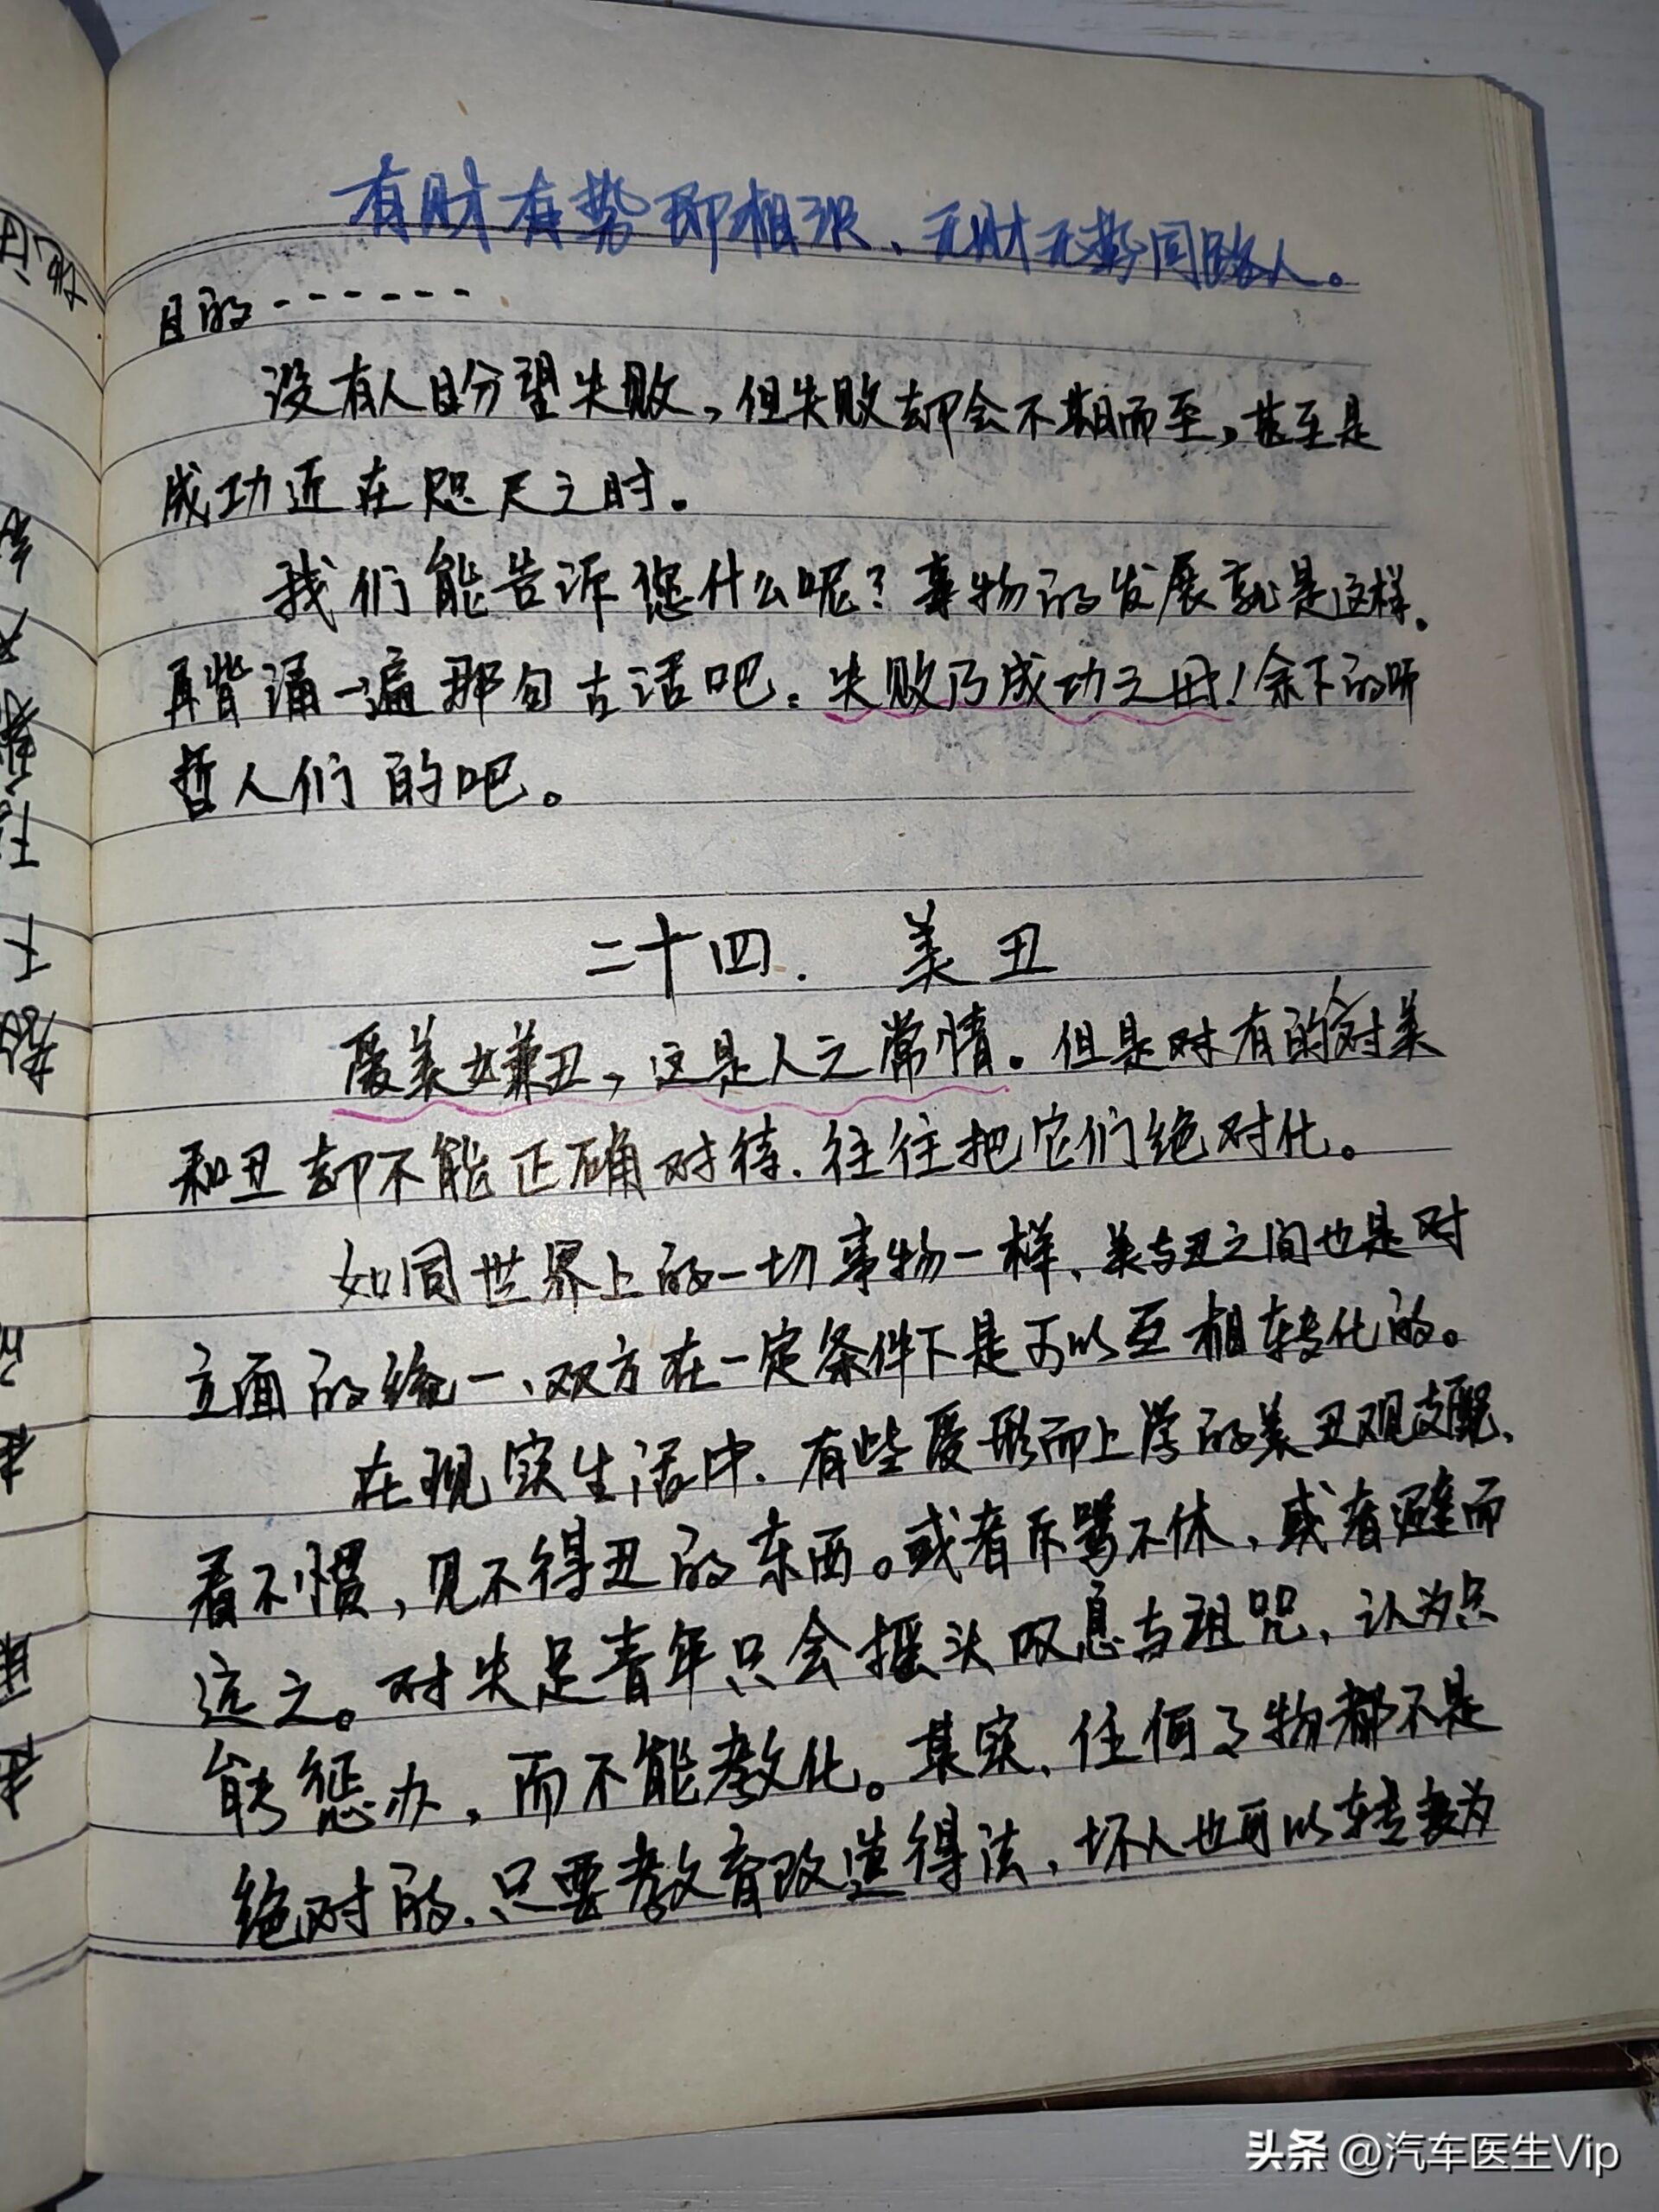 有财有势即相识、无财无势同路人。
目的------
没有人盼望失败,但失败却会不期而至,甚至是
成功近在咫尺之时。
我们能告诉您什么呢?事物的发展就是这样.
再背诵一遍那句古话吧:失败乃成功之母!余下的听
哲人们的吧。
二十四. 美丑
爱美嫌丑,这是人之常情。但是对有的人对美
和丑却不能正确对待.往往把它们绝对化。
如同世界上的一切事物一样、美与丑之间也是对
立面的统一、双方在一定条件下是可以互相转化的。
在现实生活中.有些爱形而上学的美丑观支配、
看不惯,见不得丑的东西。或者斥骂不休、或者避而
远之。对失足青年只会摇头叹息与诅咒、认为只
能惩办,而不能教化。其实、任何事物都不是
绝对的.只要教育改造得法、坏人也可以转变为
头条 @汽车医生Vip